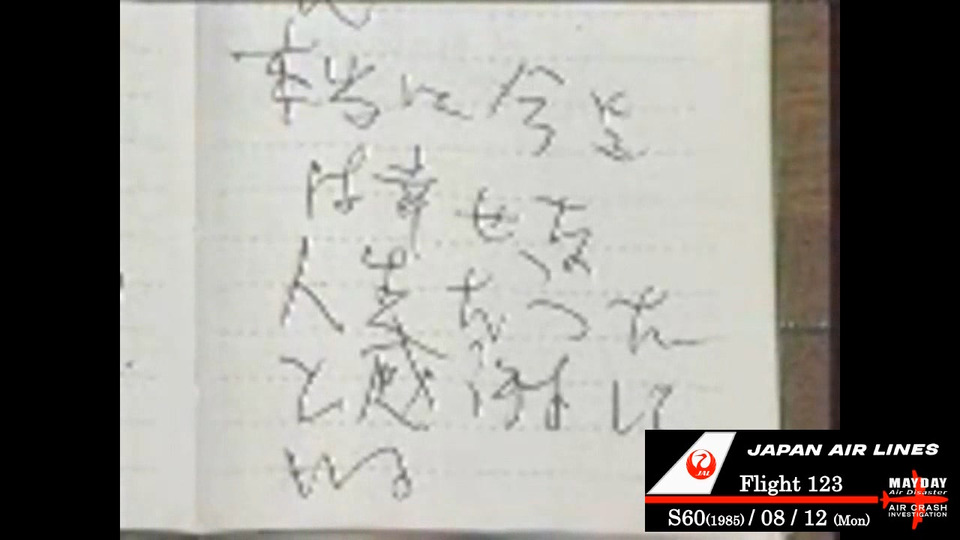 本当に今迄
は幸せな
人生だった
と感謝して
いる
JAPAN AIR LINES
JAL
Flight 123
MAYDAY
Air Disaster
AIR CRASH
INVESTIGATION
S60(1985) / 08 / 12 (Mon)